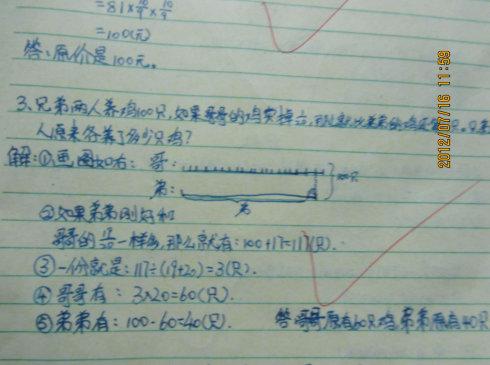 =81×10/9×10/9
=100(元)
答:原价是100元。
3、兄弟两人养鸡100只,如果哥哥的鸡卖掉
人原来各养了多少只鸡?
解:①画图如右: 哥:
弟:
②如果弟弟刚好和
哥哥的 一样多,那么就有:100+17=117(只).
③一份就是:117÷(19+20)=3(只).
④哥哥有: 3×20=60(只).
⑤弟弟有: 100-60=40(只).
答:哥哥原有60只鸡,弟弟原有40只
2012/07/16 11:59